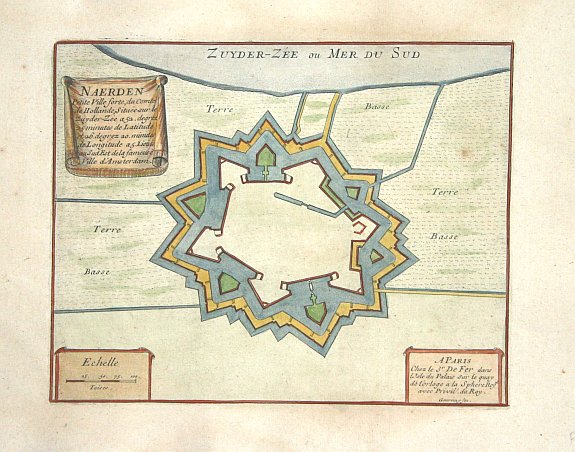 ZUYDER-ZÉE ou MER DU SUD
NAERDEN
Petite Ville forte, du Comté
de Hollande, Située sur le
Zuyder-Zée a 52. degrez
minutes de Latitude
et 26 degrez 20. minutes
de Longitude a 5. Lieües
au Sud Est de la fameuse
Ville d'Amsterdam.
Terre Basse
Terre
Basse
Terre
Basse
Echelle
25. 50. 75. 100.
Toises.
A PARIS
Chez le Sr. De Fer dans
L'isle du Palais sur le quay
de l'orloge a la Sphere Royle
avec Privil. du Roy.